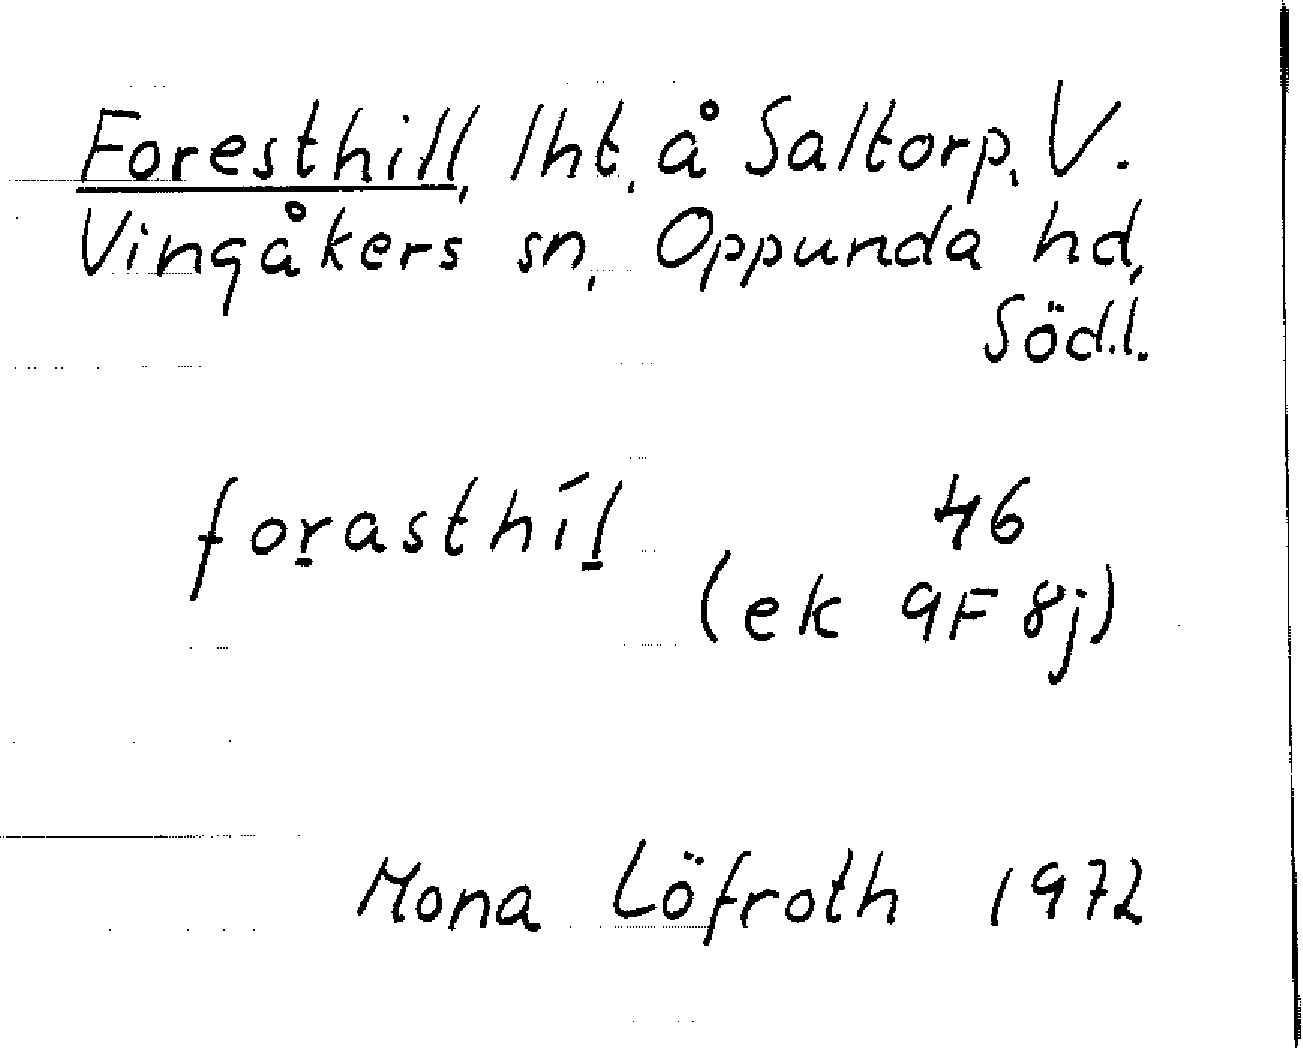 Foresthill, lht, å Saltorp, V.
Vingåkers sn, Oppunda hd,
Södl.
foṟasthíḻ 46
(ek 9F 8j)
Mona Löfroth 1972